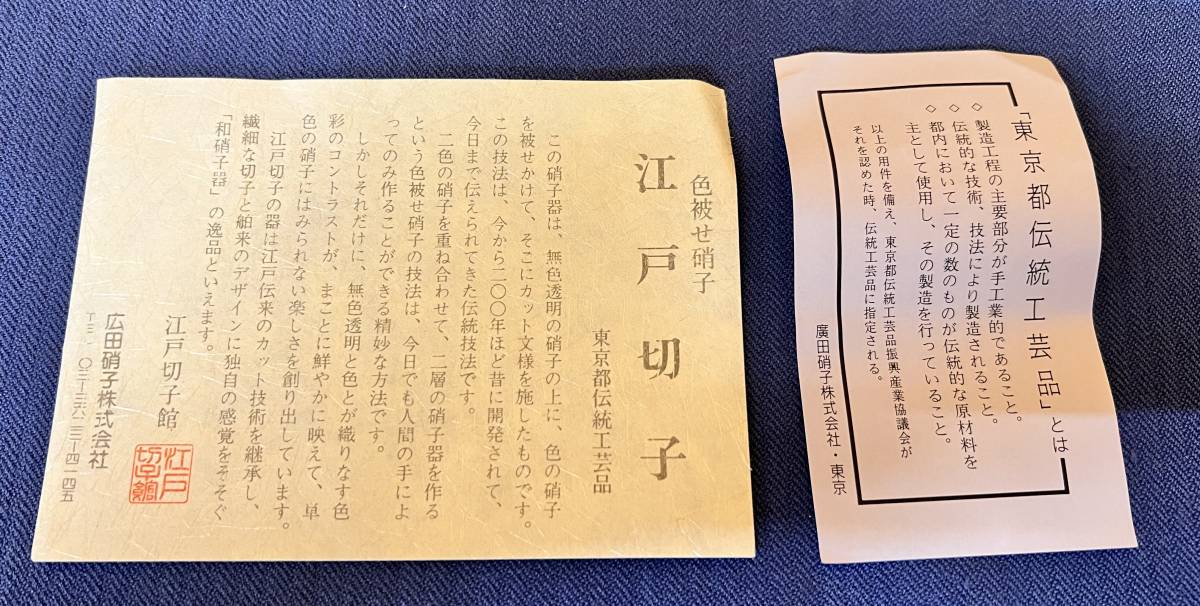 色被せ硝子
江戸切子
東京都伝統工芸品
この硝子器は、無色透明の硝子の上に、色の硝子
を被せかけて、そこにカット文様を施したものです。
この技法は、今から二〇〇年ほど昔に開発されて、
今日まで伝えられてきた伝統技法です。
二色の硝子を重ね合わせて、二層の硝子器を作る
という色被せ硝子の技法は、今日でも人間の手によ
ってのみ作ることができる精妙な方法です。
しかしそれだけに、無色透明と色とが織りなす色
彩のコントラストが、まことに鮮やかに映えて、単
色の硝子にはみられない楽しさを創り出しています。
江戸切子の器は江戸伝来のカット技術を継承し、
繊細な切子と舶来のデザインに独自の感覚をそそぐ
「和硝子器」の逸品といえます。
江戸切子館
江戸
切子館
広田硝子株式会社
〇三-三六二三-四一四五
「東京都伝統工芸品」とは
◇ 製造工程の主要部分が手工業的であること。
◇ 伝統的な技術、技法により製造されること。
◇ 都内において一定の数のものが伝統的な原材料を
主として使用し、その製造を行っていること。
以上の用件を備え、東京都伝統工芸品振興産業協議会が
それを認めた時、伝統工芸品に指定される。
廣田硝子株式会社・東京